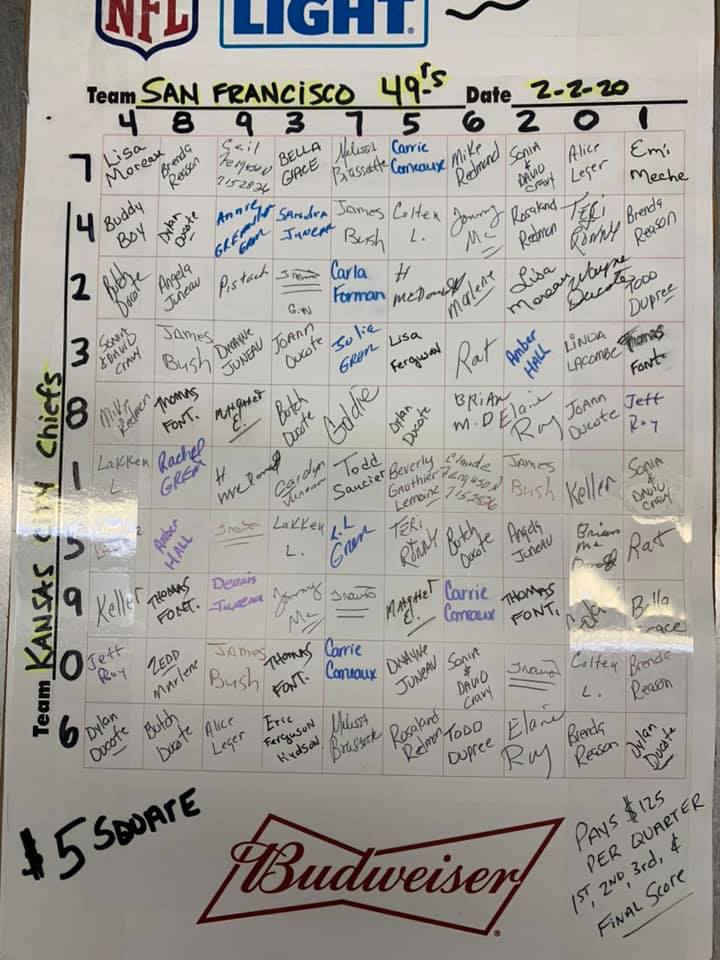 NFL LIGHT
Team SAN FRANCISCO 49rs Date 2-2-20
4 8 9 3 7 5 6 2 0 1
Team KANSAS CITY Chiefs
7 Lisa Moreau Brenda Reason Gail Ferguson 7152826 BELLA GRACE Melissa Brassette Carrie Comeaux Mike Redmond Sonia & DAVID Cravy Alice Leger Emi Meche
4 Buddy Boy Dylan Ducote Annie GREM SANDRA JUNEAU James Bush Colten L. Jonny Mc Rosaland Redmon TERI & RONNY Brenda Reason
2 Butch Ducote Angela Juneau Pistach G.N Carla Forman H McDonald Marlene Lisa Moreau Wayne Ducote TODD DUPREE
3 Sonia & DAVID Cravy JAMES Bush DWAYNE JUNEAU JOANN DUCOTE Julie GREM Lisa Ferguson Rat Amber HALL LINDA LACOMBE Thomas FONT.
8 Mike Redmon THOMAS FONT. MARGARET E. Butch Ducote Goldie Dylan Ducote BRIAN M.D Elaine Roy JoAnn Ducote Jeff Roy
1 LaKKen L Rachel GREM H McDonald Carolyn Juneau Todd Saucier Beverly Gauthier Lemoine Claude Ferguson 7152826 JAMES Bush Keller SONIA & DAVID Cravy
5 Amber HALL LaKKen L. L.L Grem TERI & RONNY Butch Ducote Angela Juneau Brian Mc Rat
9 Keller THOMAS FONT. Dennis Juneau Jonny Mc MARGARET E. Carrie Comeaux THOMAS FONT. Bella Grace
0 Jeff Roy ZEDD Marlene JAMES Bush THOMAS FONT. Carrie Comeaux DWAYNE JUNEAU SONIA & DAVID Cravy Colten L. Brenda Reason
6 Dylan Ducote Butch Ducote Alice Leger Eric Ferguson Hudson Melissa Brassette Rosaland Redmon TODD DUPREE Elaine Roy Brenda Reason Dylan Ducote
$5 SQUARE
Budweiser
PAYS $125
PER QUARTER
1ST, 2ND, 3rd, &
FINAL SCORE